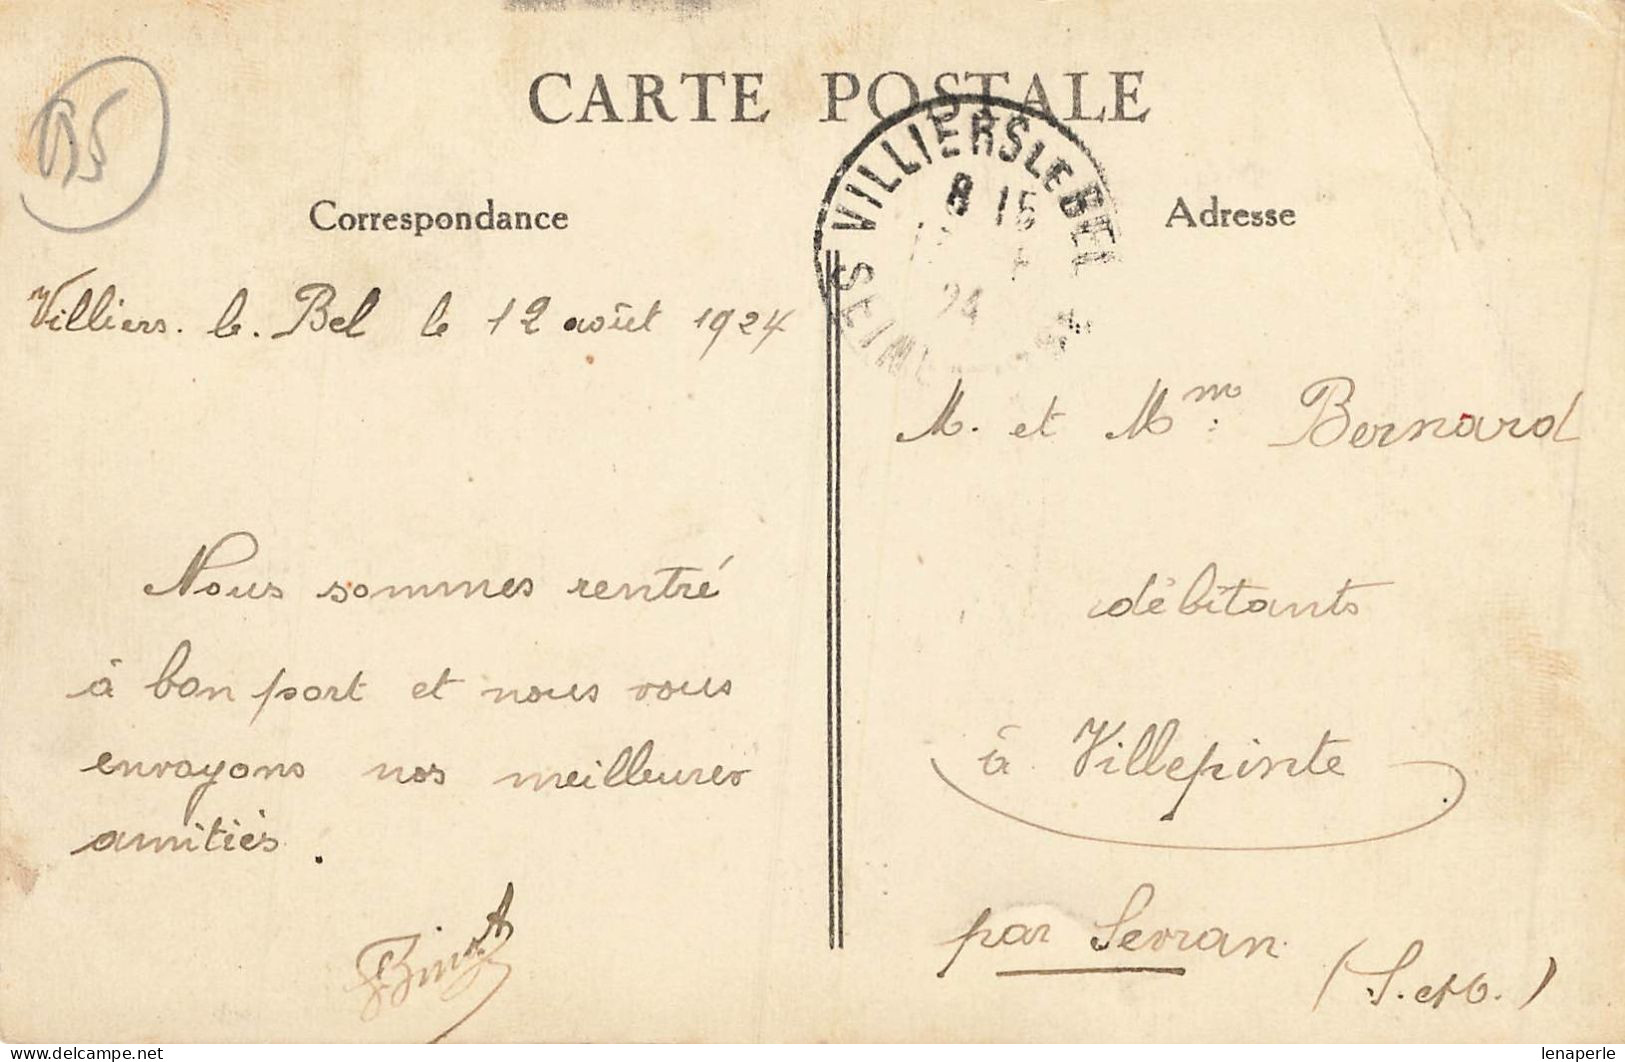 CARTE POSTALE
95
Correspondance
Villiers. le. Bel le 12 août 1924
Nous sommes rentré
à bon port et nous vous
envoyons nos meilleures
amitiés.
VILLIERS LE BEL
8 15
24
Adresse
M. et Mm. Bernard
débitants
à Villepinte
par Sevran
(S. et O.)
lenaperle